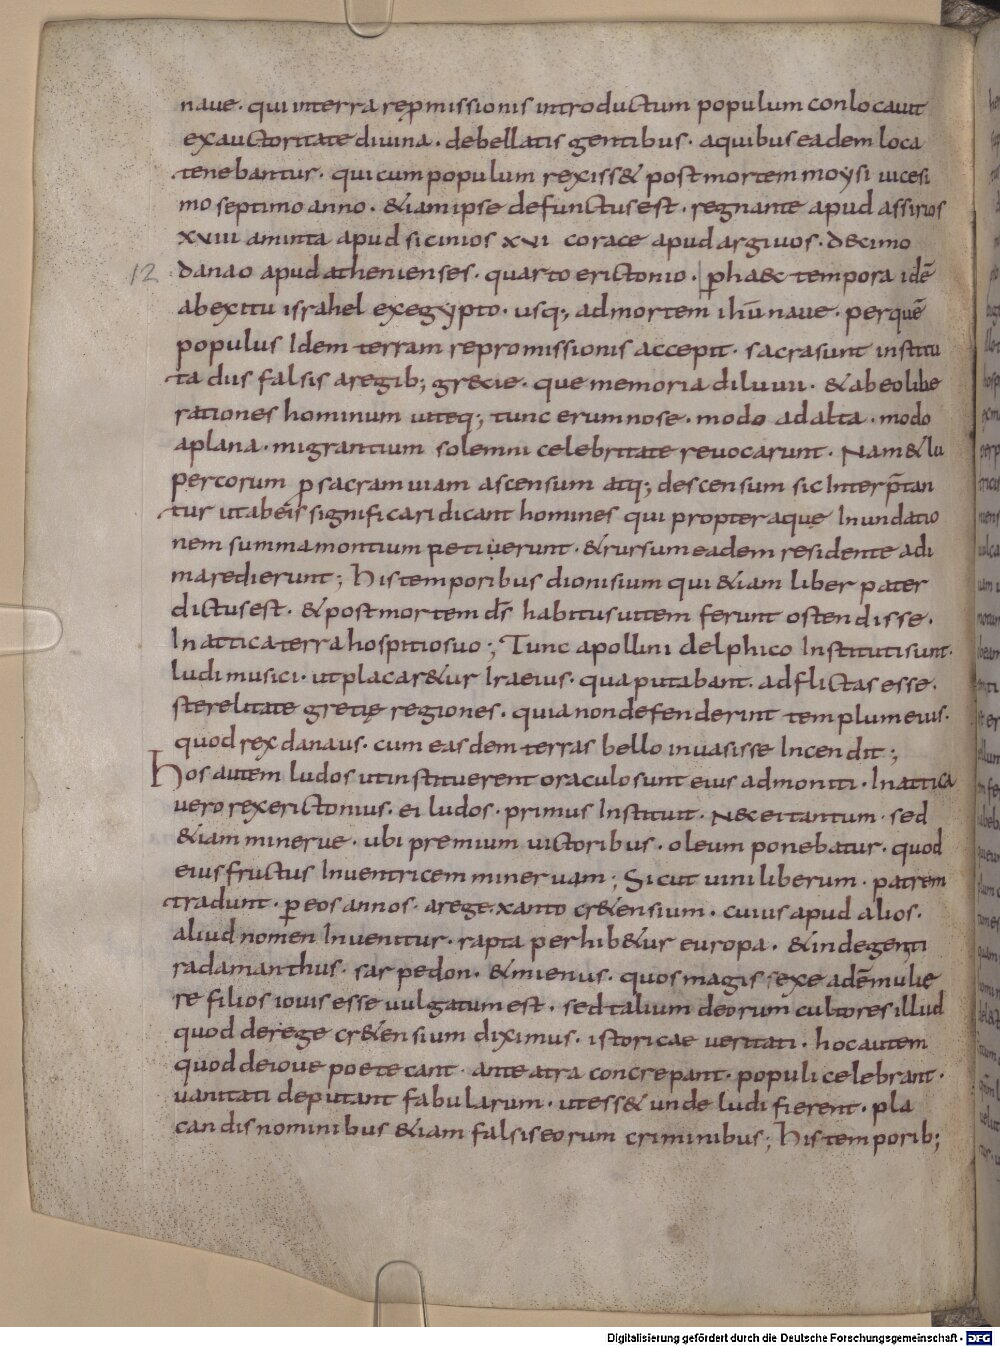 naue· qui interra repmissionis introductum populum conlocauit
exauctoritate diuina· debellatis gentibus· aquibus eadem loca
tenebantur· qui cum populum rexiss& post mortem moysi uicesi
mo septimo anno· &iam ipse defunctus est· regnante apud assirios
xviii aminta apud sicinios xvi corace apud argiuos· decimo
12 danao apud athenienses· quarto erictonio· p ha&c tempora idē
abexitu israhel exegypto· usq; ad mortem ihū naue· per quē
populus Idem terram repromissionis accepit· sacra sunt institu
ta diis falsis aregib; gr&cie· que memoria diluuii· & ab eo libe
rationes hominum uiteq; tunc erumnose· modo ad alta· modo
aplana· migrantium solemni celebritate reuocarunt· Nam & lu
percorum p sacram uiam ascensum atq; descensum sic Interp̄tan
tur ut abeis significari dicant homines qui propter aque Inundatio
nem summa montium petiuerunt· & rursum eadem residente adi
ma redierunt; his temporibus dionisium qui &iam liber pater
dictus est· & post mortem d̄s habitus uitem ferunt ostendisse·
In attica terra hospiti osuo; Tunc apollini delphico Instituti sunt·
ludi musici· ut placar&ur Ira eius· qua putabant· adflictas esse·
sterelitate gretię regiones· quia non defenderint templum eius·
quod rex danaus· cum easdem terras bello inuasisse Incendit;
Hos autem ludos ut instituerent oraculo sunt eius admoniti· In attica
uero rex erictonius· ei ludos· primus Instituit· N&c ei tantum· sed
&iam minerue· ubi premium uictoribus· oleum ponebatur· quod
eius fructus Inuentricem mineruam; Sicut uini liberum· patrem
tradunt· p eos annos· arege xanto cr&ensium· cuius apud alios·
aliud nomen Inuenitur· rapta perhib&ur europa· & inde geniti
radamanthus· sarpedon· & mienus· quos magis exe adē mulie
re filios iouis esse uulgatum est· sed talium deorum cultores illud
quod derege cr&ensium diximus· istoricae ueritati· hoc autem
quod deioue poete cant· ante atra concrepant· populi celebrant·
uanitati deputant fabularum· ut ess& unde ludi fierent· pla
candis nominibus &iam falsis eorum criminibus; his temporib;
Digitalisierung gefördert durch die Deutsche Forschungsgemeinschaft - DFG